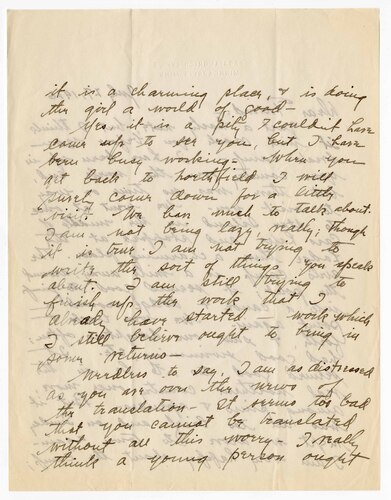 it is a charming place, & is doing
the girl a world of good—
Yes it is a pity I couldn't have
come up to see you, but I have
been busy working— When you
get back to northfield I will
surely come down for a little
visit. We have much to talk about.
I am not being lazy, really; though
it is true I am not trying to
write the sort of things you speak
about. I am still trying to
finish up the work that I
already have started — work which
I still believe ought to bring in
some returns—
Needless to say, I am as distressed
as you are over the news of
the translation— It seems too bad
that you cannot be translated
without all this worry— I really
think a young person ought